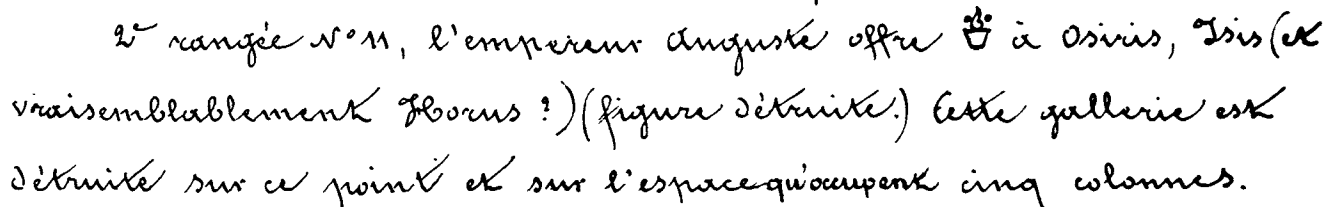 2e rangée N° 11, l'empereur Auguste offre à Osiris, Isis (et
vraisemblablement Horus ?) (figure détruite.) Cette gallerie est
détruite sur ce point et sur l'espace qu'occupent cinq colonnes.